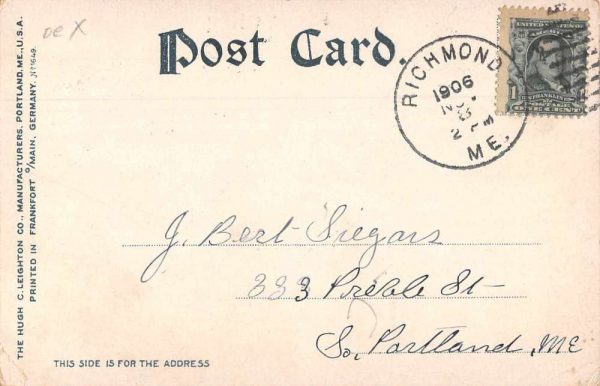 oe X
Post Card.
RICHMOND
1906
2 PM
ME.
UNITED STATES
1
FRANKLIN
ONE CENT
J. Bert Siegars
333 Preble St
So, Portland, ME
THIS SIDE IS FOR THE ADDRESS
THE HUGH C. LEIGHTON CO., MANUFACTURERS, PORTLAND, ME., U.S.A.
PRINTED IN FRANKFORT O/MAIN, GERMANY. Nº 1649.